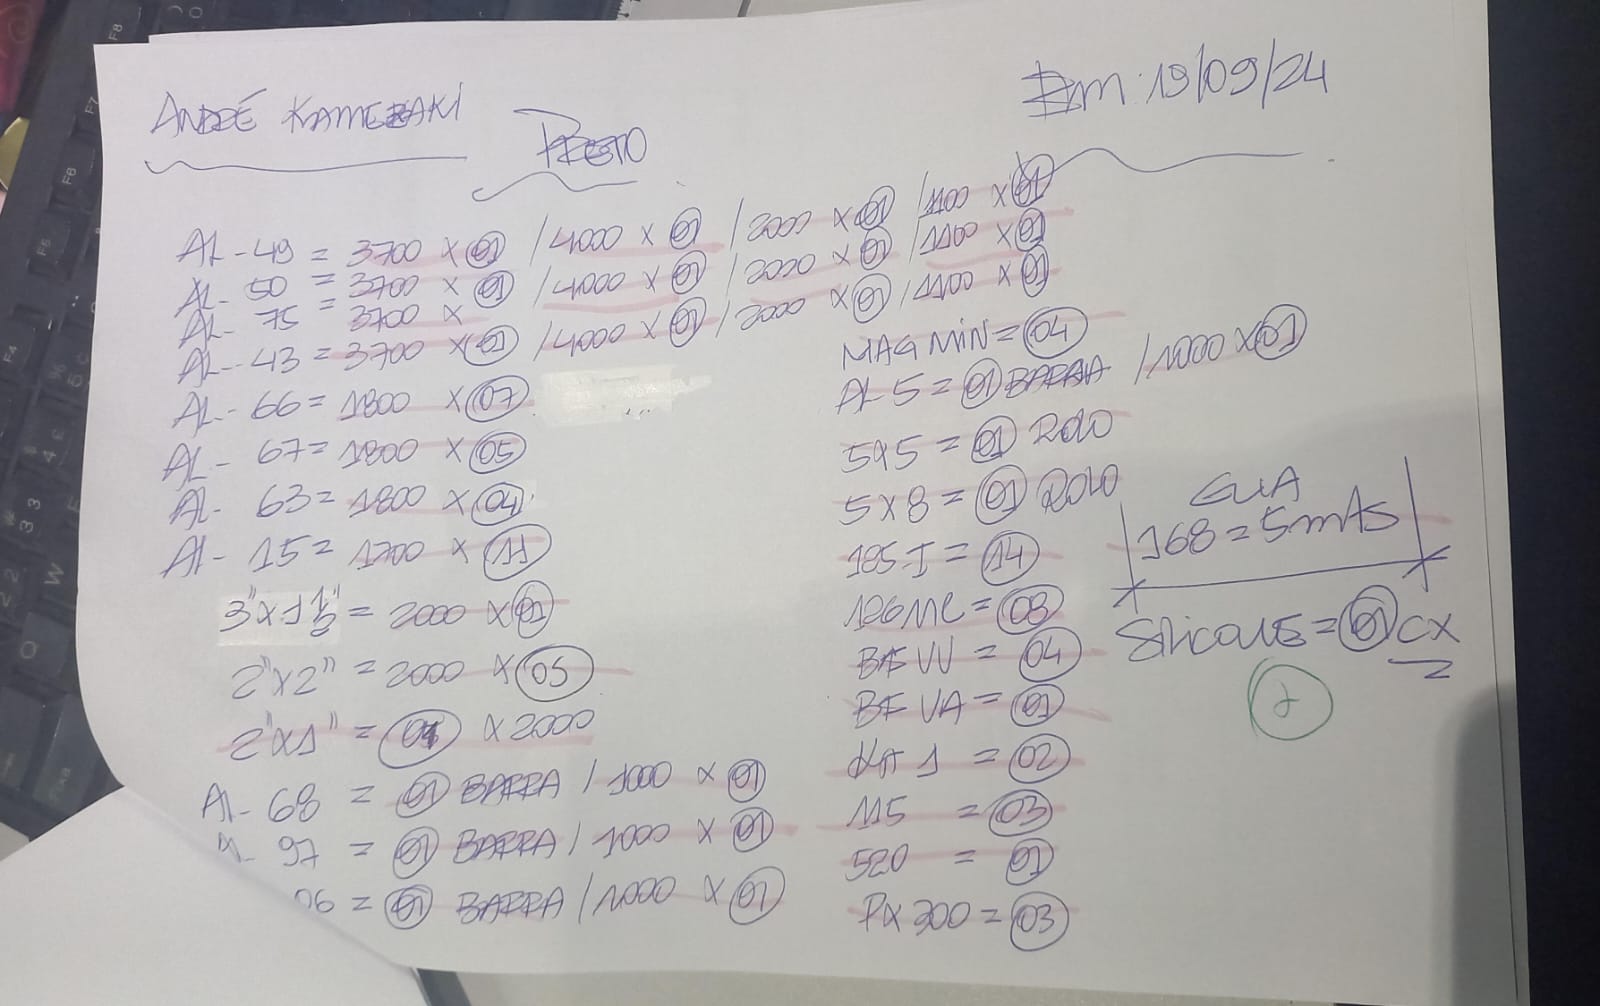 ANDRÉ KAMEZAKI
PRETO
Em: 19/09/24
AL-49 = 3700 x 01 / 4000 x 01 / 2000 x 01 / 1100 x 01
AL-50 = 3700 x 01 / 4000 x 01 / 2000 x 01 / 1100 x 01
AL-75 = 3700 x
AL-43 = 3700 x 01 / 4000 x 01 / 2000 x 01 / 1100 x 01
AL-66 = 1800 x 07
AL-67 = 1800 x 05
AL-63 = 1800 x 04
AL-15 = 1700 x 11
3"x1 = 2000 x 01
2"x2" = 2000 x 05
2"x1" = x 2000
AL-68 = 01 BARRA / 1000 x 01
97 = 01 BARRA / 1000 x 01
06 = 01 BARRA / 1000 x 01
MAG MIN = 04
AL 5 = 01 BARRA / 1000 x 01
5x5 = 01 ROLO
5x8 = 01 ROLO
185 I = 14
= 03
VV = 04
VA = 01
1 = 02
115 = 03
520 = 01
300 = 03
GUA
168 = 5 mts
SILICONE = 01 CX